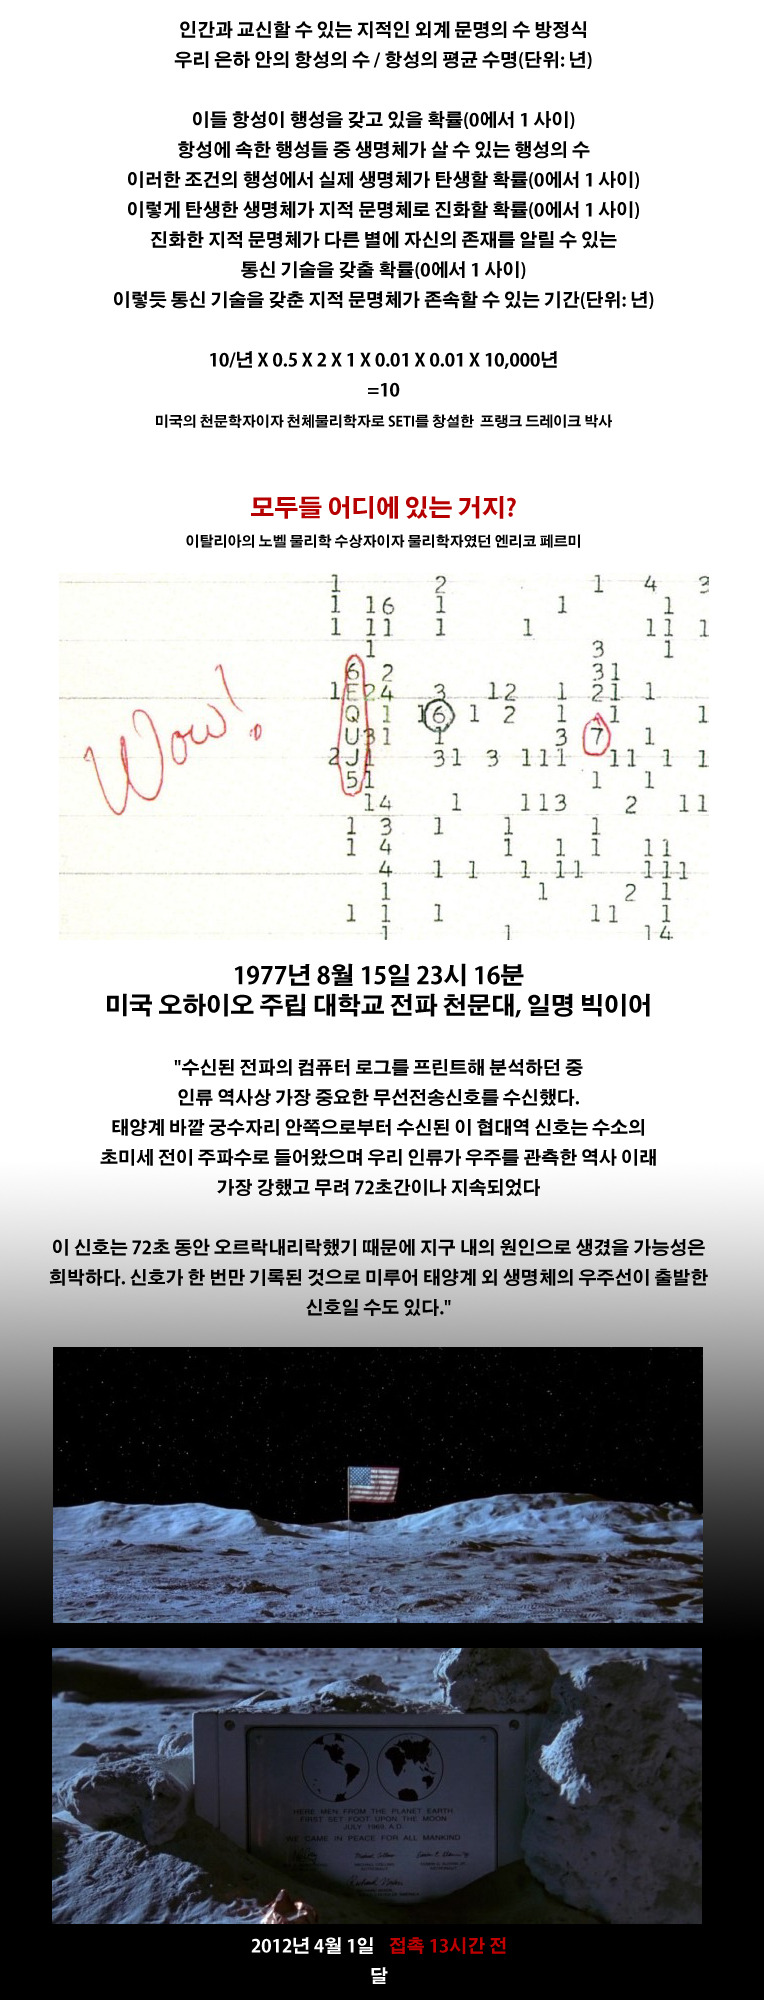 인간과 교신할 수 있는 지적인 외계 문명의 수 방정식
우리 은하 안의 항성의 수 / 항성의 평균 수명(단위: 년)
이들 항성이 행성을 갖고 있을 확률(0에서 1 사이)
항성에 속한 행성들 중 생명체가 살 수 있는 행성의 수
이러한 조건의 행성에서 실제 생명체가 탄생할 확률(0에서 1 사이)
이렇게 탄생한 생명체가 지적 문명체로 진화할 확률(0에서 1 사이)
진화한 지적 문명체가 다른 별에 자신의 존재를 알릴 수 있는
통신 기술을 갖출 확률(0에서 1 사이)
이렇듯 통신 기술을 갖춘 지적 문명체가 존속할 수 있는 기간(단위: 년)
10/년 X 0.5 X 2 X 1 X 0.01 X 0.01 X 10,000년
=10
미국의 천문학자이자 천체물리학자로 SETI를 창설한 프랭크 드레이크 박사
모두들 어디에 있는 거지?
이탈리아의 노벨 물리학 수상자이자 물리학자였던 엔리코 페르미
1 2 1 4 3
1 16 1 1 1
1 11 1 1 11 1
1 3 1
6 2 31
1 E 24 3 12 1 21 1
Q 1 16 1 2 1 1 1
Wow!
U 31 1 3 7 1
2 J 1 31 3 111 11 1 1
5 1 1 1
14 1 113 2 11
1 3 1 1 1
1 4 1 1 1 11
4 1 1 1 11 111
1 1 2 1
1 1 1 11 1
1 1 14
1977년 8월 15일 23시 16분
미국 오하이오 주립 대학교 전파 천문대, 일명 빅이어
"수신된 전파의 컴퓨터 로그를 프린트해 분석하던 중
인류 역사상 가장 중요한 무선전송신호를 수신했다.
태양계 바깥 궁수자리 안쪽으로부터 수신된 이 협대역 신호는 수소의
초미세 전이 주파수로 들어왔으며 우리 인류가 우주를 관측한 역사 이래
가장 강했고 무려 72초간이나 지속되었다
이 신호는 72초 동안 오르락내리락했기 때문에 지구 내의 원인으로 생겼을 가능성은
희박하다. 신호가 한 번만 기록된 것으로 미루어 태양계 외 생명체의 우주선이 출발한
신호일 수도 있다."
HERE MEN FROM THE PLANET EARTH
FIRST SET FOOT UPON THE MOON
JULY 1969, A.D.
WE CAME IN PEACE FOR ALL MANKIND
2012년 4월 1일 접촉 13시간 전
달